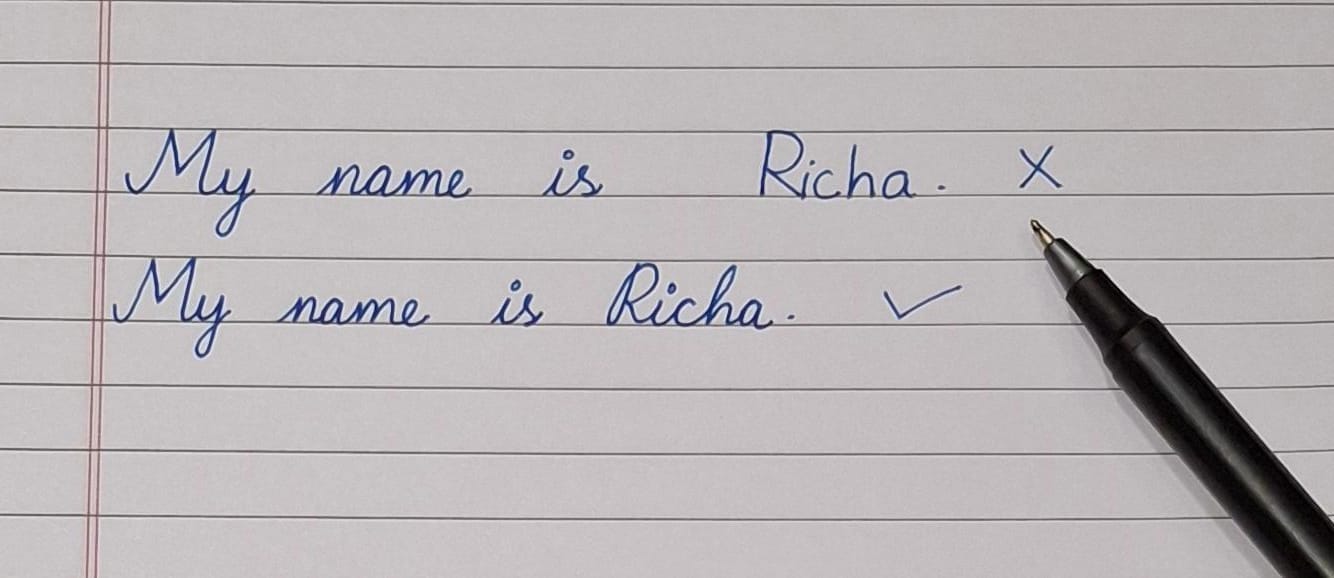 My name is Richa. X
My name is Richa. ✓